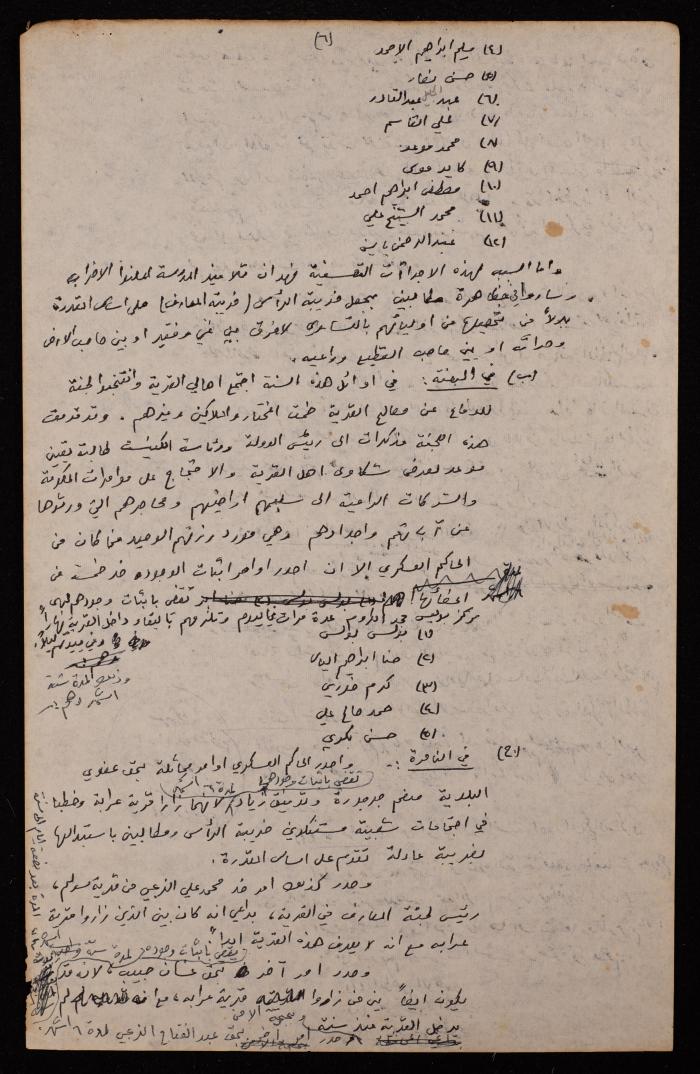 (٦)
(٤) سليم ابراهيم الاحمد
(٥) حسن نصار
(٦) عبد عبدالقادر
(٧) علي القاسم
(٨) محمد موعد
(٩) كايد موسى
(١٠) مصطفى ابراهيم احمد
(١١) محمود الشيخ علي
(١٢) عبدالرحمن ياسين
واما السبب لهذه الاجراءات التعسفية فهو ان تلاميذ المدرسة اعلنوا الاضراب
وساروا في مظاهرة مطالبين بجعل ضريبة الرأس (ضريبة المعارف) على اساس المقدرة
بدلاً من تحصيلها من اوليائهم بالتساوي لا فرق بين غني وفقير او بين صاحب الارض
وحراث او بين صاحب القطيع وراعيه.
(ب) في البعنة: في اوائل هذه السنة اجتمع اهالي القرية وانتخبوا لجنة
للدفاع عن مصالح القرية ضمت المختار والملاكين وغيرهم. وقد قدمت
هذه اللجنة مذكرات الى رئيس الدولة ورئاسة الكنيست لطالبة تعيين
موعد لعرض شكاوى اهل القرية والاحتجاج على مؤامرات الحكومة
والشركات الرامية الى سلبهم اراضيهم ومحاجرهم التي ورثوها
عن آبائهم واجدادهم وهي مورد رزقهم الوحيد فما كان من
الحاكم العسكري الا ان اصدر اوامر اثبات الوجود ضد خمسة من
اعضائها تقضي باثبات وجودهم لدى
مركز بوليس مجد الكروم عدة مرات في اليوم وتلزمهم بالبقاء داخل القرية نهاراً
وفي بيوتهم ليلاً
وذلك لمدة ستة
اشهر وهم:
(١) بولس بولس
(٢) حنا ابراهيم الياس
(٣) كرم خوري
(٤) حمد صالح علي
(٥) حسن بكري
(ج) في الناصرة: واصدر الحاكم العسكري اوامر مماثلة بحق عضوي
تقضي باثبات وجودهما لمدة ٦ اشهر
البلدية منعم جرجورة وتوفيق زياد لانهما زارا قرية عرابة وخطبا
في اجتماعات شعبية مستنكرين ضريبة الرأس ومطالبين باستبدالها
بضريبة عادلة تقوم على اساس المقدرة.
وصدر كذلك امر ضد محمد علي الزعبي من قرية سولم،
رئيس لجنة المعارف في القرية، بداعي انه كان بين الذين زاروا قرية
عرابه مع انه لا يعرف هذه القرية ابداً
يقضي باثبات وجوده لمدة ستة
وصدر امر آخر بحق غسان حبيب، لانه قد
يكون ايضاً بين من زاروا قرية عرابه، مع انه لم
يدخل القرية منذ سنة
وصدر بحق عبد الفتاح الزعبي لمدة ٦ اشهر